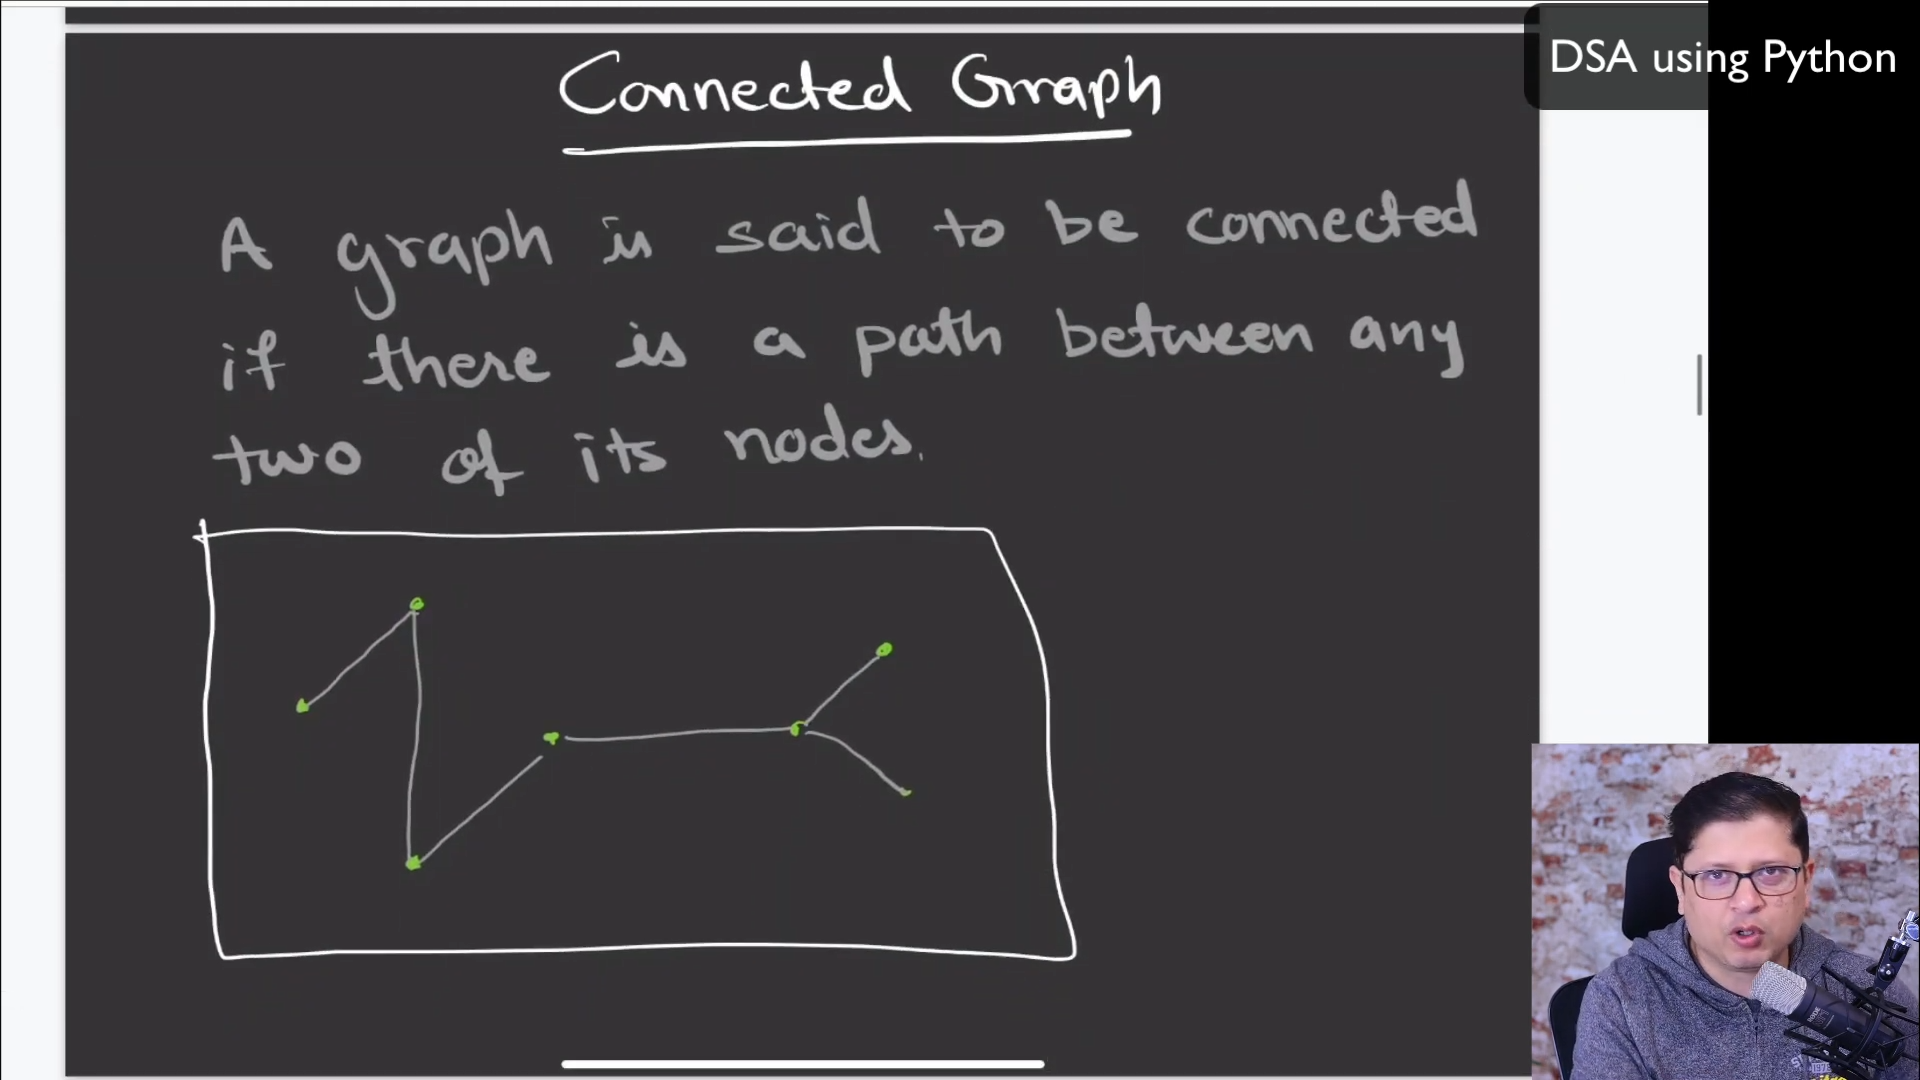 DSA using Python
Connected Graph
A graph is said to be connected
if there is a path between any
two of its nodes.